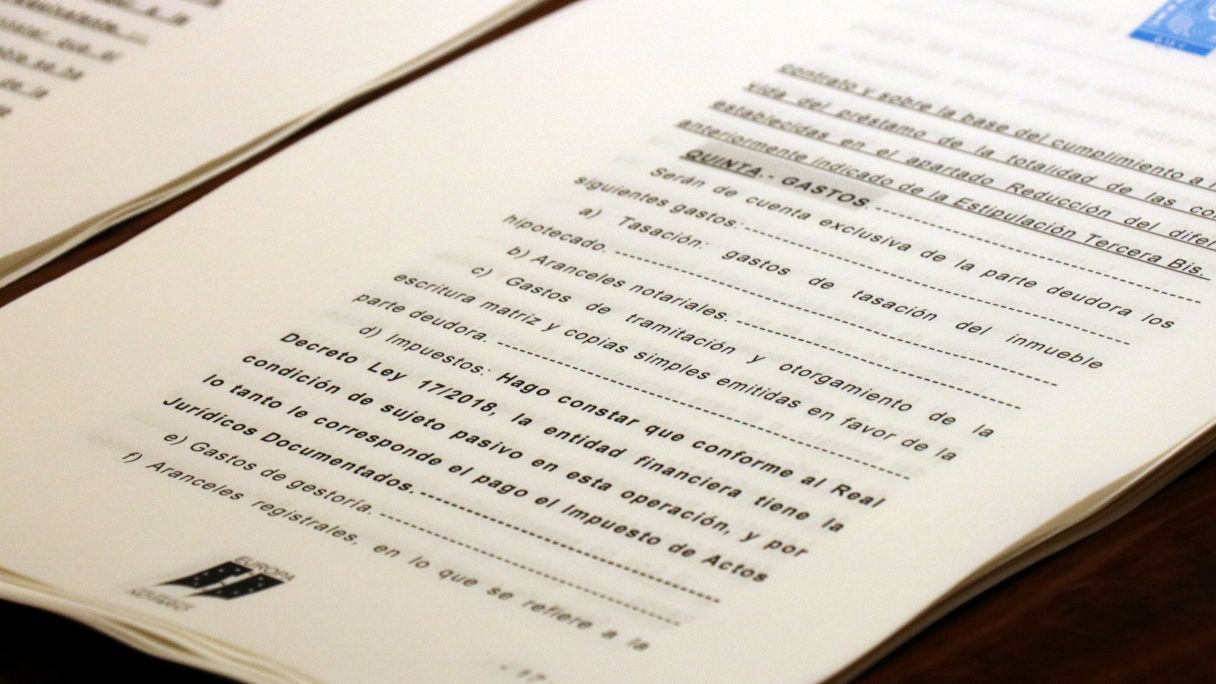 contrato y sobre la base del cumplimiento a
vida del préstamo de la totalidad de las
establecidas en el apartado Reducción del
anteriormente indicado de la Estipulación Tercera Bis.
QUINTA.- GASTOS.
Serán de cuenta exclusiva de la parte deudora los
siguientes gastos:
a) Tasación: gastos de tasación del inmueble
hipotecado.
b) Aranceles notariales.
c) Gastos de tramitación y otorgamiento de la
escritura matriz y copias simples emitidas en favor de la
parte deudora.
d) Impuestos: Hago constar que conforme al Real
Decreto Ley 17/2018, la entidad financiera tiene la
condición de sujeto pasivo en esta operación, y por
lo tanto le corresponde el pago el Impuesto de Actos
Jurídicos Documentados.
e) Gastos de gestoría.
f) Aranceles registrales, en lo que se refiere a la
EUROPA